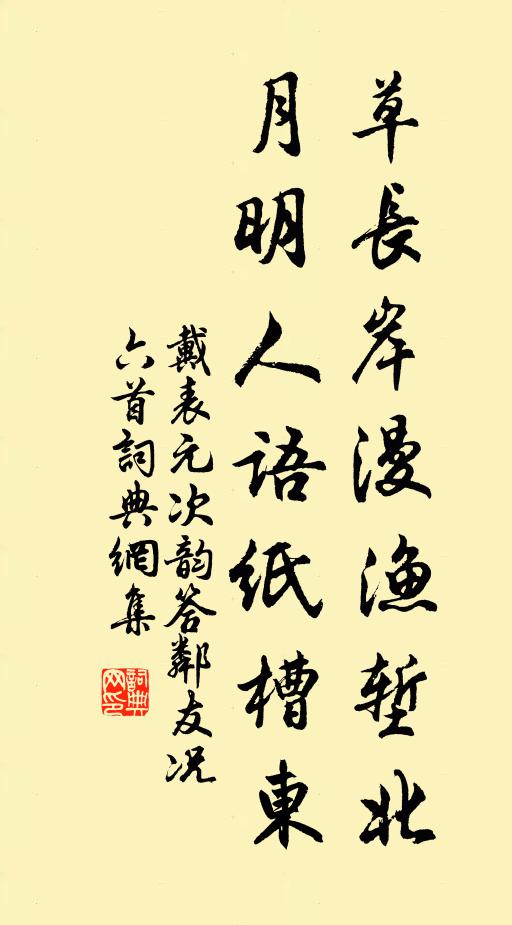 草長岸漫漁塹北
月明人語紙槽東
戴表元次韵答鄰友况
六首詞典網集
詞典網印